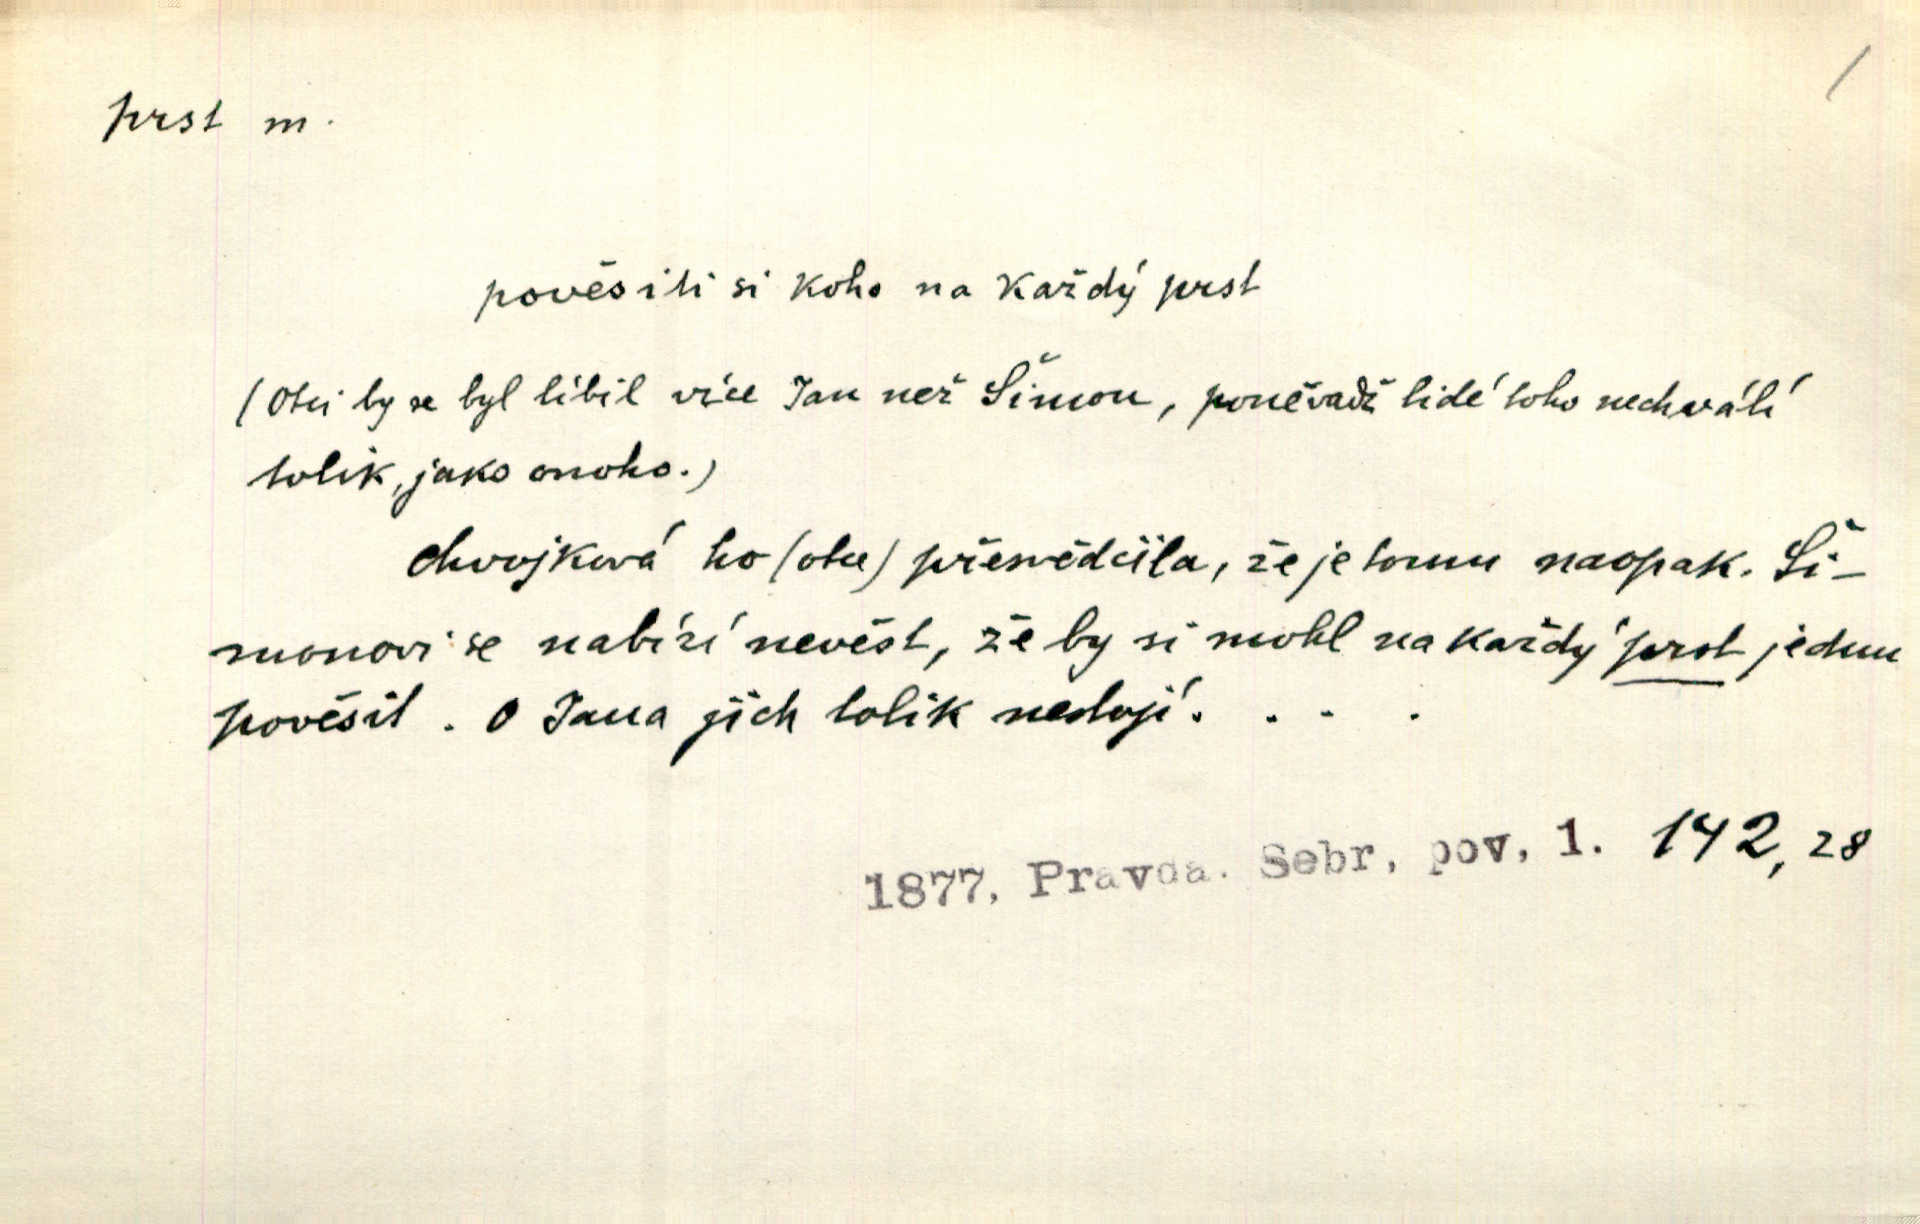 prst m.
pověsiti si koho na každý prst
(Otci by se byl líbil více Jan než Šimon, poněvadž lidé toho nechválí
tolik, jako onoho.)
Chvojková ho (otce) přesvědčila, že je tomu naopak. Ši-
monovi se nabízí nevěst, že by si mohl na každý prst jednu
pověsit. O Jana jich tolik nestojí. . . .
1877, Pravda. Sebr, pov, 1. 142, 28